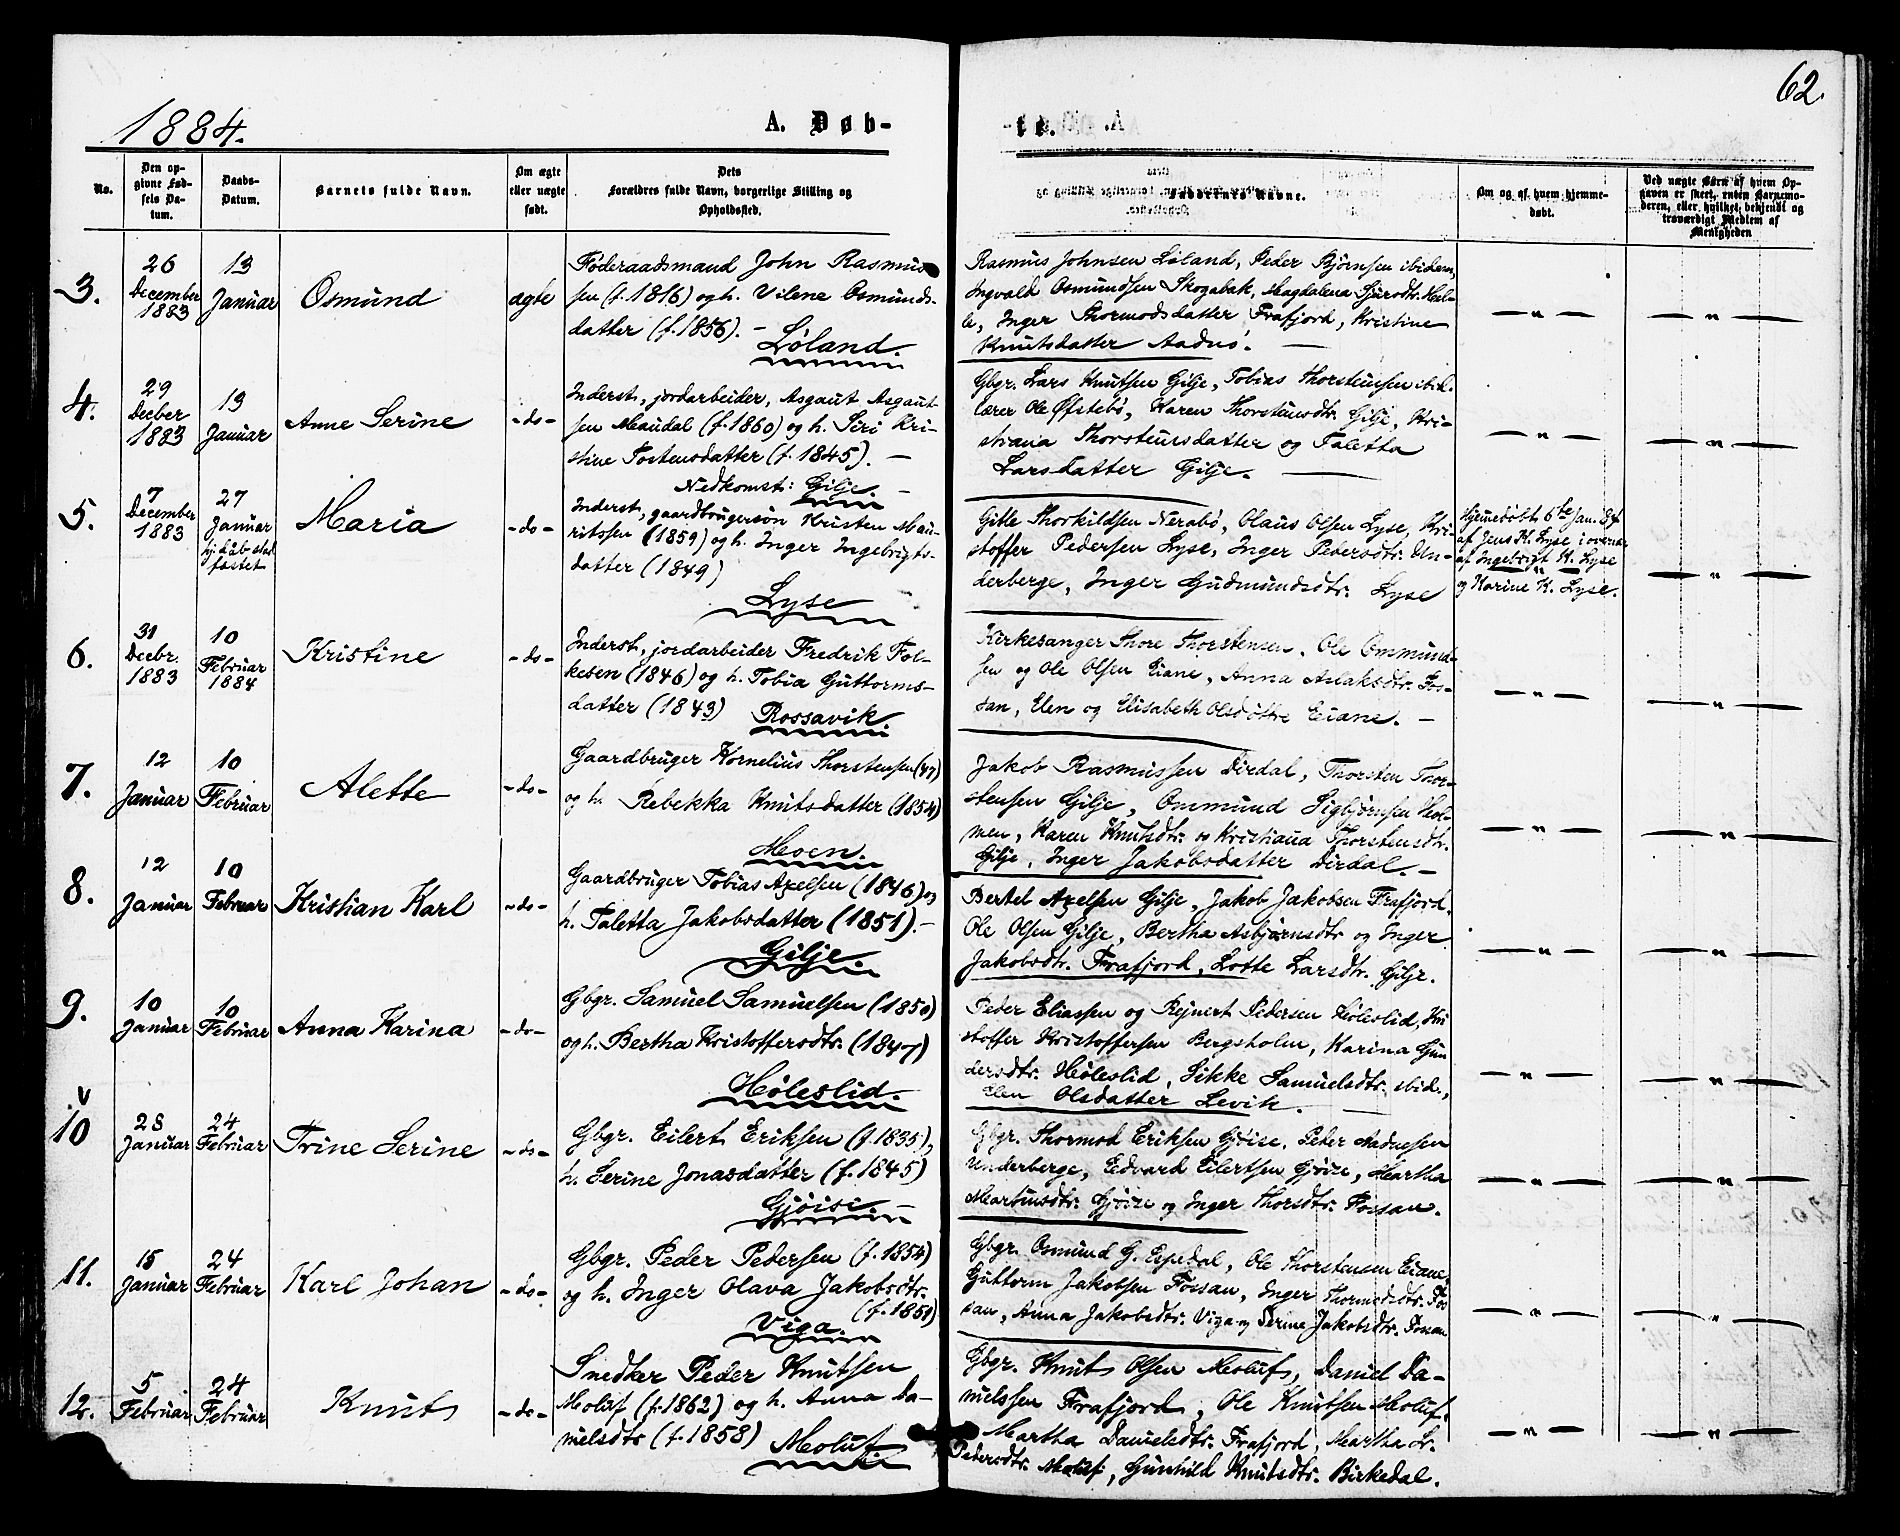 62.
1884.
A. Døb-
te.
No.
Den op-
givne Fød-
sels Da-
tum.
Daabs-
Datum.
Barnets fulde Navn.
Om ægte
eller uægte
født.
Dets
Forældres fulde Navn, borgerlige Stilling og
Opholdssted.
Faddernes Navne.
Om og af hvem hjemme-
døbt.
Ved uægte Børn af hvem Op-
gaven er skeet, enten Barnemo-
deren, eller hvilket bekjendt og
troværdigt Medlem af
Menigheden
3.
26
December
1883
13
Januar
Osmund
ægte
Føderaadsmand John Rasmus
sen (f. 1816) og h. Vilene Osmunds-
datter (f. 1856). —
Løland.
Rasmus Johnsen Løland, Peder Bjørnsen ibidem,
Ingvald Osmundsen Skogabak, Magdalena Sjursdtr. Hel-
le, Inger Thormodsdatter Frafjord, Kristine
Knutsdatter Aadnø. —
— " —
— " —
4.
29
Decber
1883
13
Januar
Anne Serine
- do -
Inderst, jordarbeider, Asgaut Asgaut-
sen Maudal (f. 1860) og h. Siri Kri-
stine Tostensdatter (f. 1845). —
Nedkomst: Gilje. —
Gbgr. Lars Knutsen Gilje, Tobias Thorsteinsen ibid.
lærer Ole Øfstebø, Karen Thorsteinsdtr. Gilje, Kri-
stiana Thorsteinsdatter og Taletta
Larsdatter Gilje. —
— " —
— " —
5.
7
December
1883
27
Januar
hj. døb. stad
fæstet
Maria
- do -
Inderst, gaardbrugersøn Kristen Mau-
ritssen (1859) og h. Inger Ingebrigts-
datter (1849)
Lyse
Gitle Thorkildsen Nerabø, Olaus Olsen Lyse, Kri-
stoffer Pedersen Lyse, Inger Pedersdtr. Un-
derberge, Inger Gudmundsdtr. Lyse
Hjemmedøbt 6te Jan. 84
af Jens K. Lyse i overvær
af Ingebrigt H. Lyse
og Karine K. Lyse.
— " —
6.
31
Decbr.
1883
10
Februar
1884
Kristine
- do -
Inderst, jordarbeider Fredrik Fol-
kesen (1846) og h. Tobia Guttorms-
datter (1843)
Rossavik.
Kirkesanger Thore Thorstensen, Ole Ommund-
sen og Ole Olsen Eiane, Anna Aslaksdtr. Fos-
san, Elen og Elisabeth Olsdøttre Eiane. —
— " —
— " —
7.
12
Januar
10
Februar
Alette
- do -
Gaardbruger Kornelius Thorstensen (47)
og h. Rebekka Knutsdatter (1854)
Moen.
Jakob Rasmussen Dirdal, Thorsten Thor-
stensen Gilje, Ommund Sigbjørnsen Hol-
men, Karen Knutsdtr. og Kristiana Thorstensdtr.
Gilje, Inger Jakobsdatter Dirdal. —
— " —
— " —
8.
12
Januar
10
Februar
Kristian Karl
- do -
Gaardbruger Tobias Axelsen (1846) og
h. Taletta Jakobsdatter (1851). -
Gilje.
Bertel Axelsen Gilje, Jakob Jakobsen Frafjord,
Ole Olsen Gilje, Bertha Asbjørnsdtr og Inger
Jakobsdtr. Frafjord, Lotte Larsdtr. Gilje.
— " —
— " —
9.
10
Januar
10
Februar
Anna Karina
- do -
Gbgr. Samuel Samuelsen (1850)
og h. Bertha Kristoffersdtr. (1847)
Høleslid.
Peder Eliassen og Rejnert Pedersen Høleslid, Kri
stoffer Kristoffersen Bergsholm, Karina Gun
dersdtr. Høleslid, Sikke Samuelsdtr. ibid.,
Elen Olsdatter Levik. —
— " —
— " —
v
10
28
Januar
24
Februar
Trine Serine
- do -
Gbgr. Eilert Eriksen (f. 1835),
h. Serine Jonasdatter (f. 1845)
Gjøise. —
Gbgr. Thormod Eriksen Gjøise, Peter Aadnesen
Underberge, Edvard Eilertsen Gjøise, Martha
Martinsdtr. Gjøise og Inger Thorsdtr. Fossan.
— " —
— " —
11.
15
Januar
24
Februar
Karl Johan
- do -
Gbgr. Peder Pedersen (f. 1854)
og h. Inger Olava Jakobsdtr.
(f. 1851)
Viga.
Gbgr. Osmund G. Espedal, Ole Thorstensen Eiane,
Guttorm Jakobsen Fossan, Inger Thormodsdtr. Fos
san, Anna Jakobsdtr. Viga og Serine Jakobsdtr. Fossan
— " —
— " —
12.
5
Februar
24
Februar
Knut
- do -
Snedker Peder Knutsen
Moluf (f. 1862) og h. Anna Da-
nielsdtr (f. 1858)
Moluf.
Gbgr. Knut Olsen Moluf, Daniel Da-
nielssen Frafjord, Ole Knutsen Moluf.
Martha Danielsdtr. Frafjord, Martha
Pedersdtr. Moluf, Gunhild Knutsdtr. Birkedal.
— " —
— " —